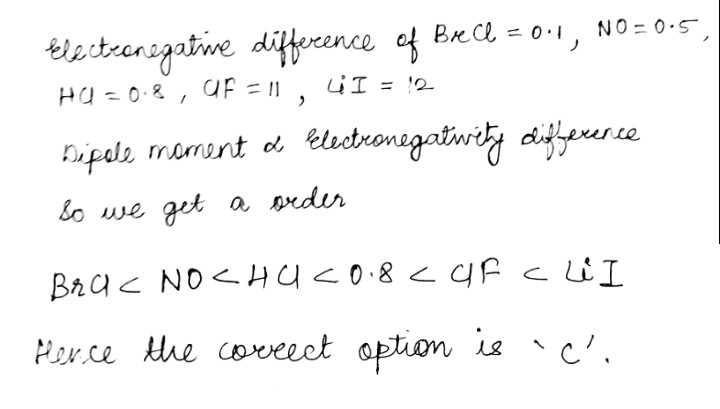 Electronegative difference of BrCl = 0.1, NO = 0.5,
HCl = 0.8, ClF = 11, LiI = 12
Dipole moment α Electronegativity difference
So we get a order
BrCl < NO < HCl < 0.8 < ClF < LiI
Hence the correct option is 'C'.